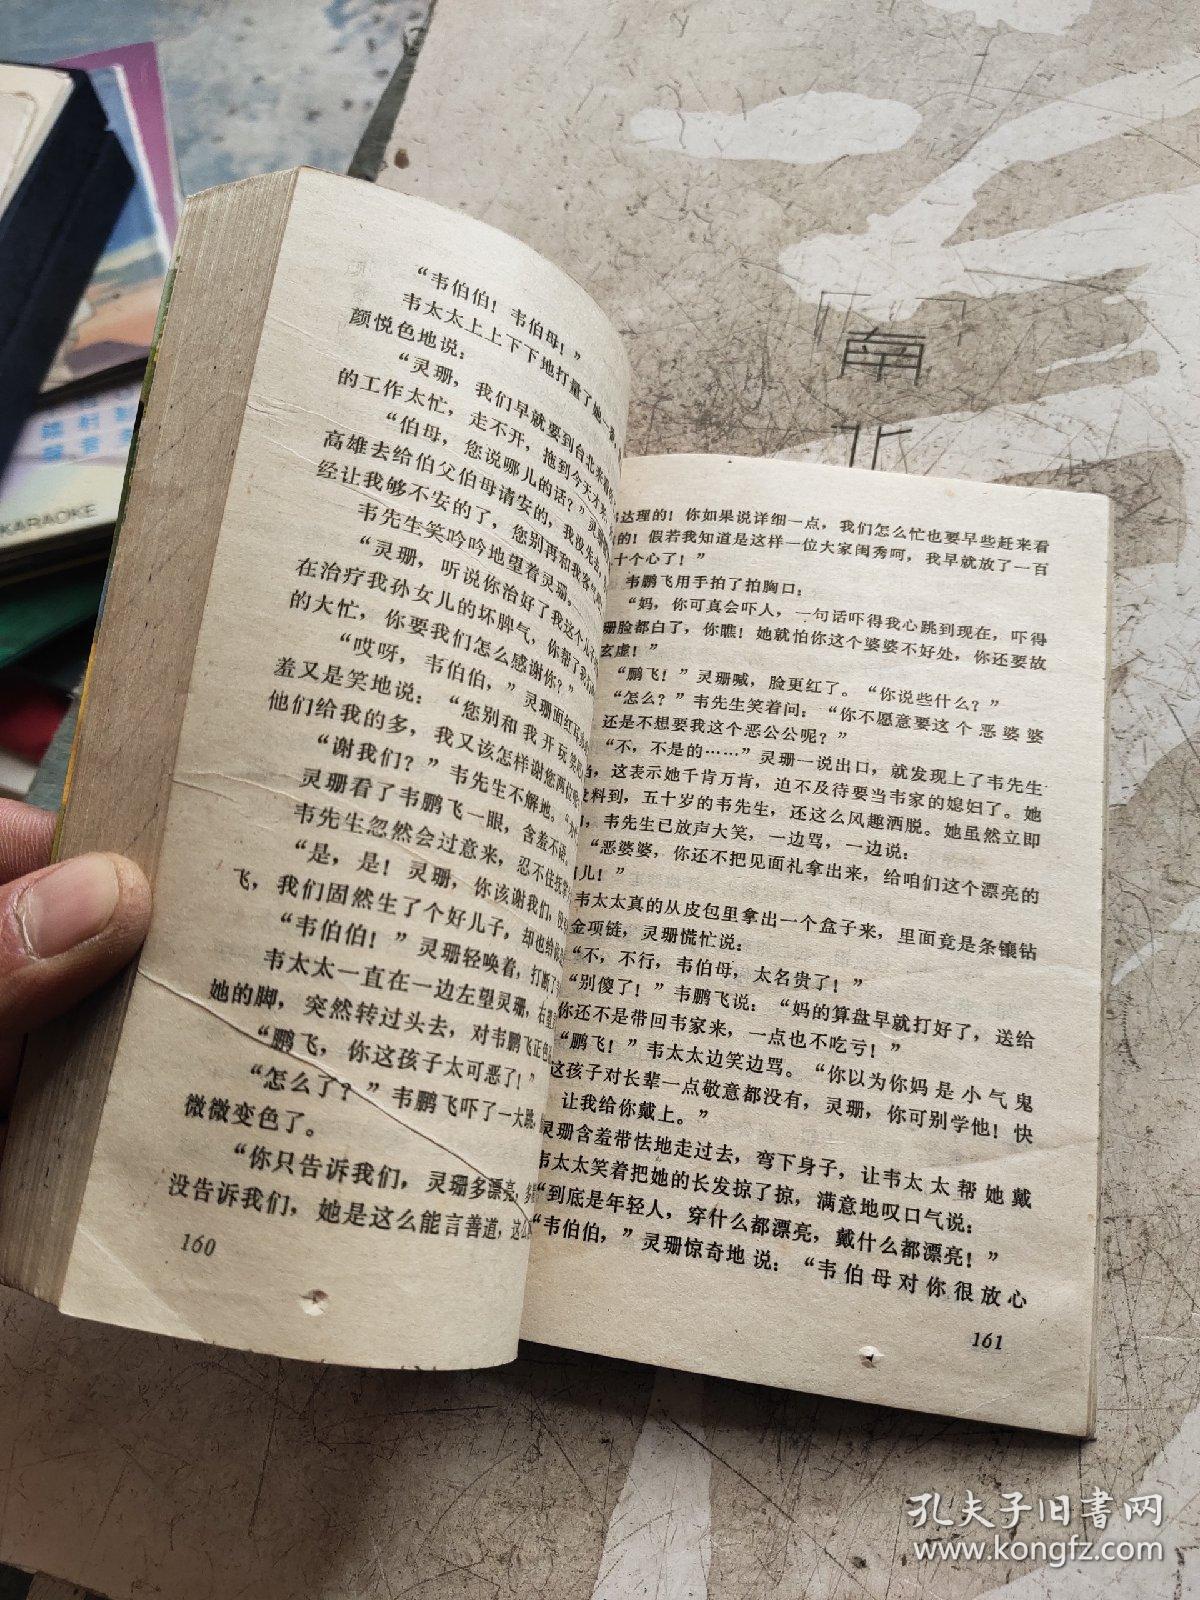 “韦伯伯！韦伯母！”
韦太太上上下下地打量了她一番，
颜悦色地说：
“灵珊，我们早就要到台北来看
的工作太忙，走不开，拖到今天才来
“伯母，您说哪儿的话？”灵珊
高雄去给伯父伯母请安的，我没先去，
经让我够不安的了，您别再和我客气
韦先生笑吟吟地望着灵珊。
“灵珊，听说你治好了我这个儿子
在治疗我孙女儿的坏脾气，你帮了我
的大忙，你要我们怎么感谢你？”
“哎呀，韦伯伯，”灵珊面红耳
羞又是笑地说：“您别和我开玩笑
他们给我的多，我又该怎样谢您两位
“谢我们？”韦先生不解地。
灵珊看了韦鹏飞一眼，含羞不语。
韦先生忽然会过意来，忍不住抚掌
“是，是！灵珊，你该谢我们，
飞，我们固然生了个好儿子，却也给
“韦伯伯！”灵珊轻唤着，打断了
韦太太一直在一边左望灵珊，右望
她的脚，突然转过头去，对韦鹏飞正色
“鹏飞，你这孩子太可恶了！”
“怎么了？”韦鹏飞吓了一大跳，
微微变色了。
“你只告诉我们，灵珊多漂亮、多
没告诉我们，她是这么能言善道，这么
160
达理的！你如果说详细一点，我们怎么忙也要早些赶来看
的！假若我知道是这样一位大家闺秀呵，我早就放了一百
十个心了！”
韦鹏飞用手拍了拍胸口：
“妈，你可真会吓人，一句话吓得我心跳到现在，吓得
珊脸都白了，你瞧！她就怕你这个婆婆不好处，你还要故
玄虚！”
“鹏飞！”灵珊喊，脸更红了。“你说些什么？”
“怎么？”韦先生笑着问：“你不愿意要这个恶婆婆
还是不想要我这个恶公公呢？”
“不，不是的……”灵珊一说出口，就发现上了韦先生
当，这表示她千肯万肯，迫不及待要当韦家的媳妇了。她
料到，五十岁的韦先生，还这么风趣洒脱。她虽然立即
，韦先生已放声大笑，一边骂，一边说：
“恶婆婆，你还不把见面礼拿出来，给咱们这个漂亮的
儿！”
韦太太真的从皮包里拿出一个盒子来，里面竟是条镶钻
金项链，灵珊慌忙说：
“不，不行，韦伯母，太名贵了！”
“别傻了！”韦鹏飞说：“妈的算盘早就打好了，送给
你还不是带回韦家来，一点也不吃亏！”
“鹏飞！”韦太太边笑边骂。“你以为你妈是小气鬼
这孩子对长辈一点敬意都没有，灵珊，你可别学他！快
让我给你戴上。”
灵珊含羞带怯地走过去，弯下身子，让韦太太帮她戴
韦太太笑着把她的长发掠了掠，满意地叹口气说：
“到底是年轻人，穿什么都漂亮，戴什么都漂亮！”
“韦伯伯，”灵珊惊奇地说：“韦伯母对你很放心
161
KARAOKE
「南
北
孔夫子旧书网
www.kongfz.com